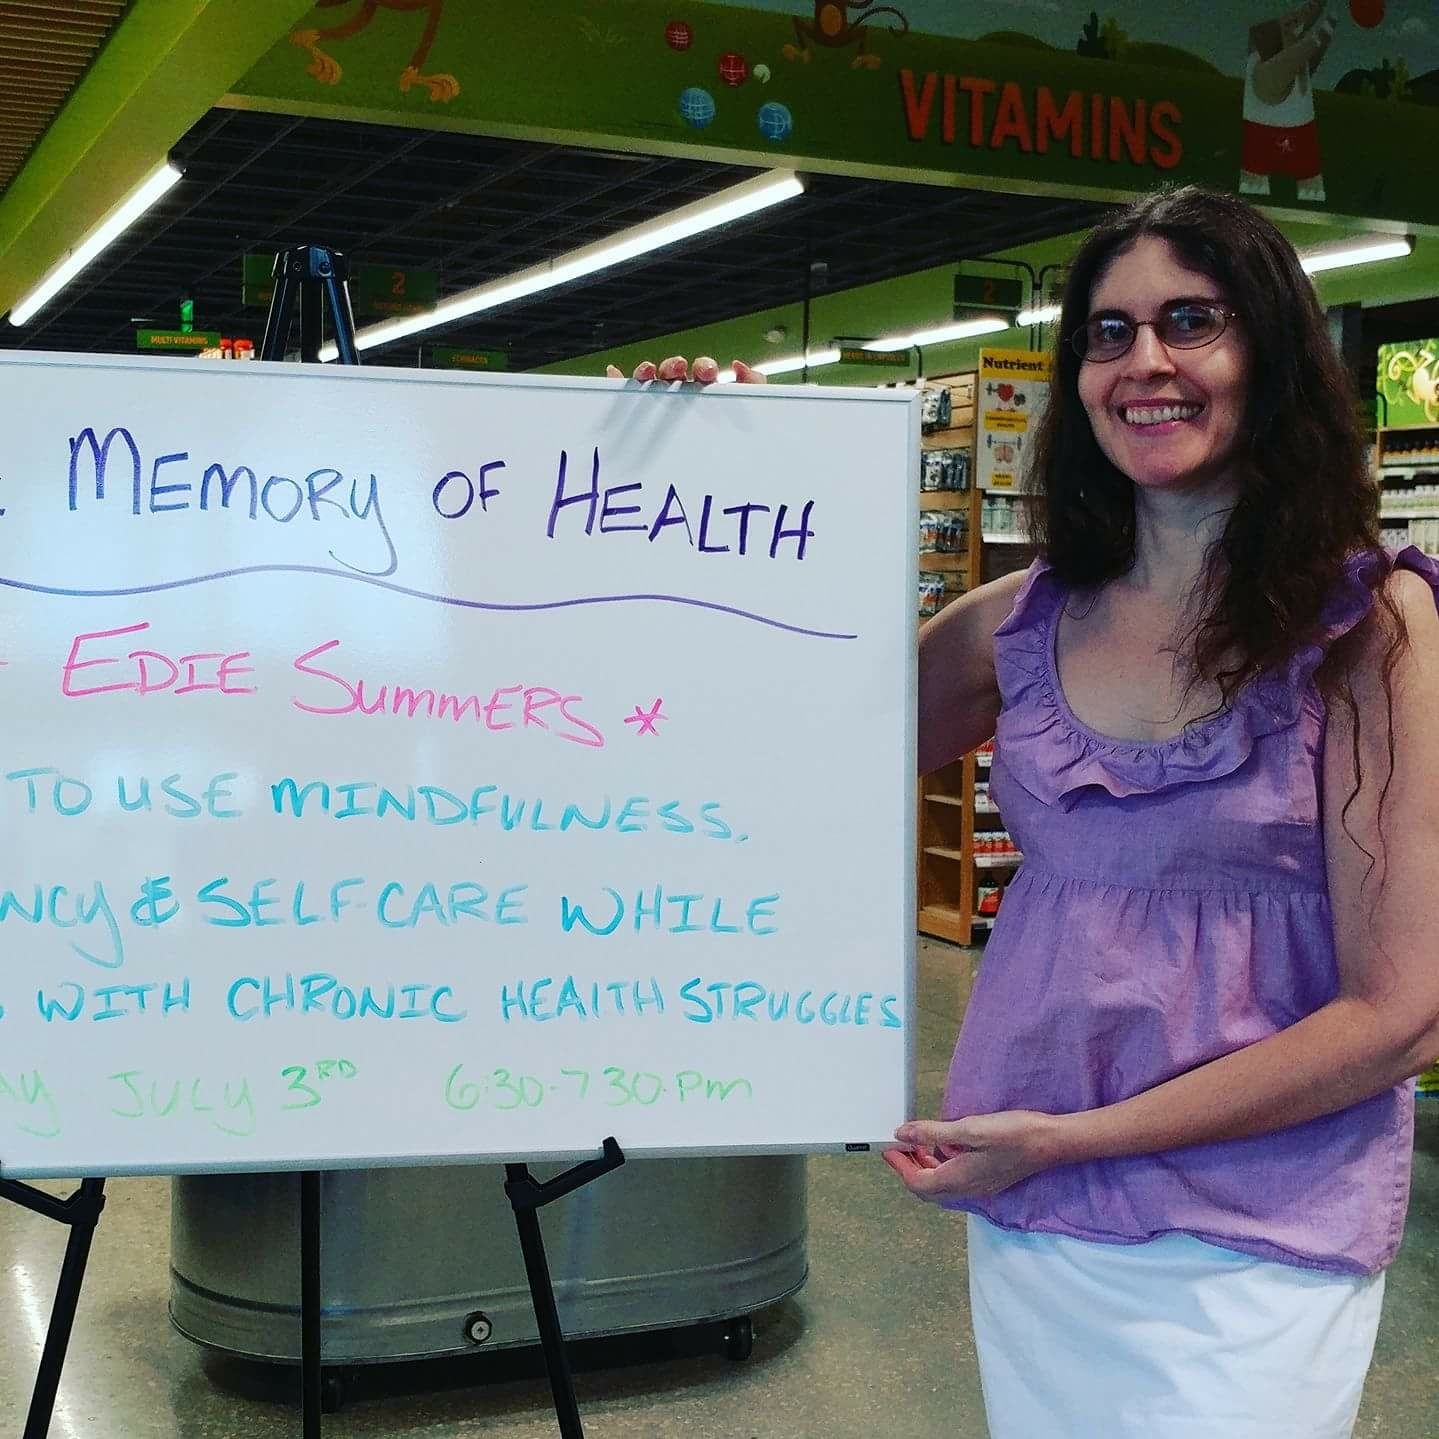 VITAMINS
MULTI VITAMINS
2
2
ECHINACEA
Nutrient
MEMORY OF HEALTH
EDIE SUMMERS *
TO USE MINDFULNESS,
NCY & SELF CARE WHILE
WITH CHRONIC HEALTH STRUGGLES
AY JULY 3RD 6:30-730 Pm